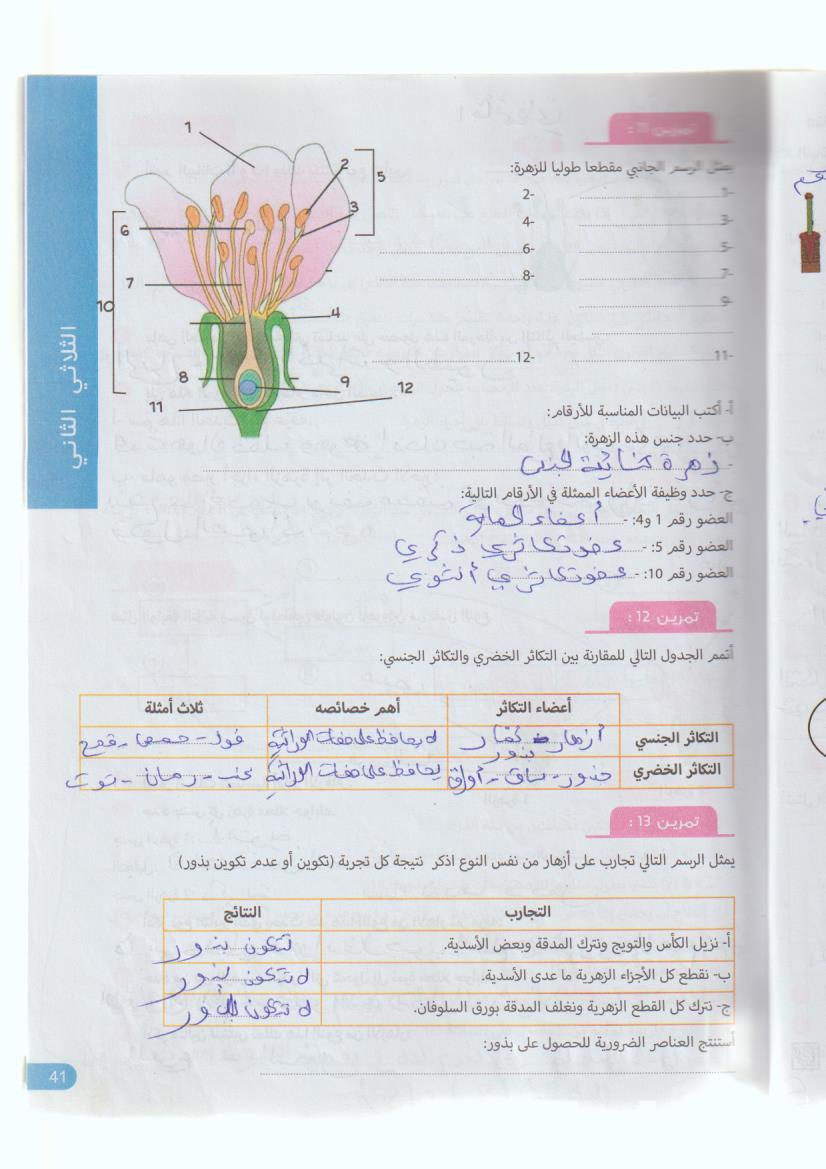 تمرين 11 :
يمثل الرسم الجانبي مقطعا طوليا للزهرة:
1- 2-
3- 4-
5- 6-
7- 8-
9-
11- 12-
1
2
5
3
6
7
10
4
8
9
12
11
أ- أكتب البيانات المناسبة للأرقام:
ب- حدد جنس هذه الزهرة:
- زهرة ثنائية الجنس
ج- حدد وظيفة الأعضاء الممثلة في الأرقام التالية:
العضو رقم 1 و4: - أعضاء الحماية
العضو رقم 5: - عضو تكاثري ذكري
العضو رقم 10: - عضو تكاثري أنثوي
تمرين 12 :
أتمم الجدول التالي للمقارنة بين التكاثر الخضري والتكاثر الجنسي:
أعضاء التكاثر أهم خصائصه ثلاث أمثلة
التكاثر الجنسي أزهار - بذور لا يحافظ على صفات الوراثية فول - حمص - قمح
التكاثر الخضري جذور - ساق - أوراق يحافظ على صفات الوراثية عنب - رمان - توت
تمرين 13 :
يمثل الرسم التالي تجارب على أزهار من نفس النوع اذكر نتيجة كل تجربة (تكوين أو عدم تكوين بذور)
التجارب النتائج
أ- نزيل الكأس والتويج ونترك المدقة وبعض الأسدية. تتكون بذور
ب- نقطع كل الأجزاء الزهرية ما عدى الأسدية. لا تتكون بذور
ج- نترك كل القطع الزهرية ونغلف المدقة بورق السلوفان. لا تتكون بذور
أستنتج العناصر الضرورية للحصول على بذور:
الثلاثي الثاني
41